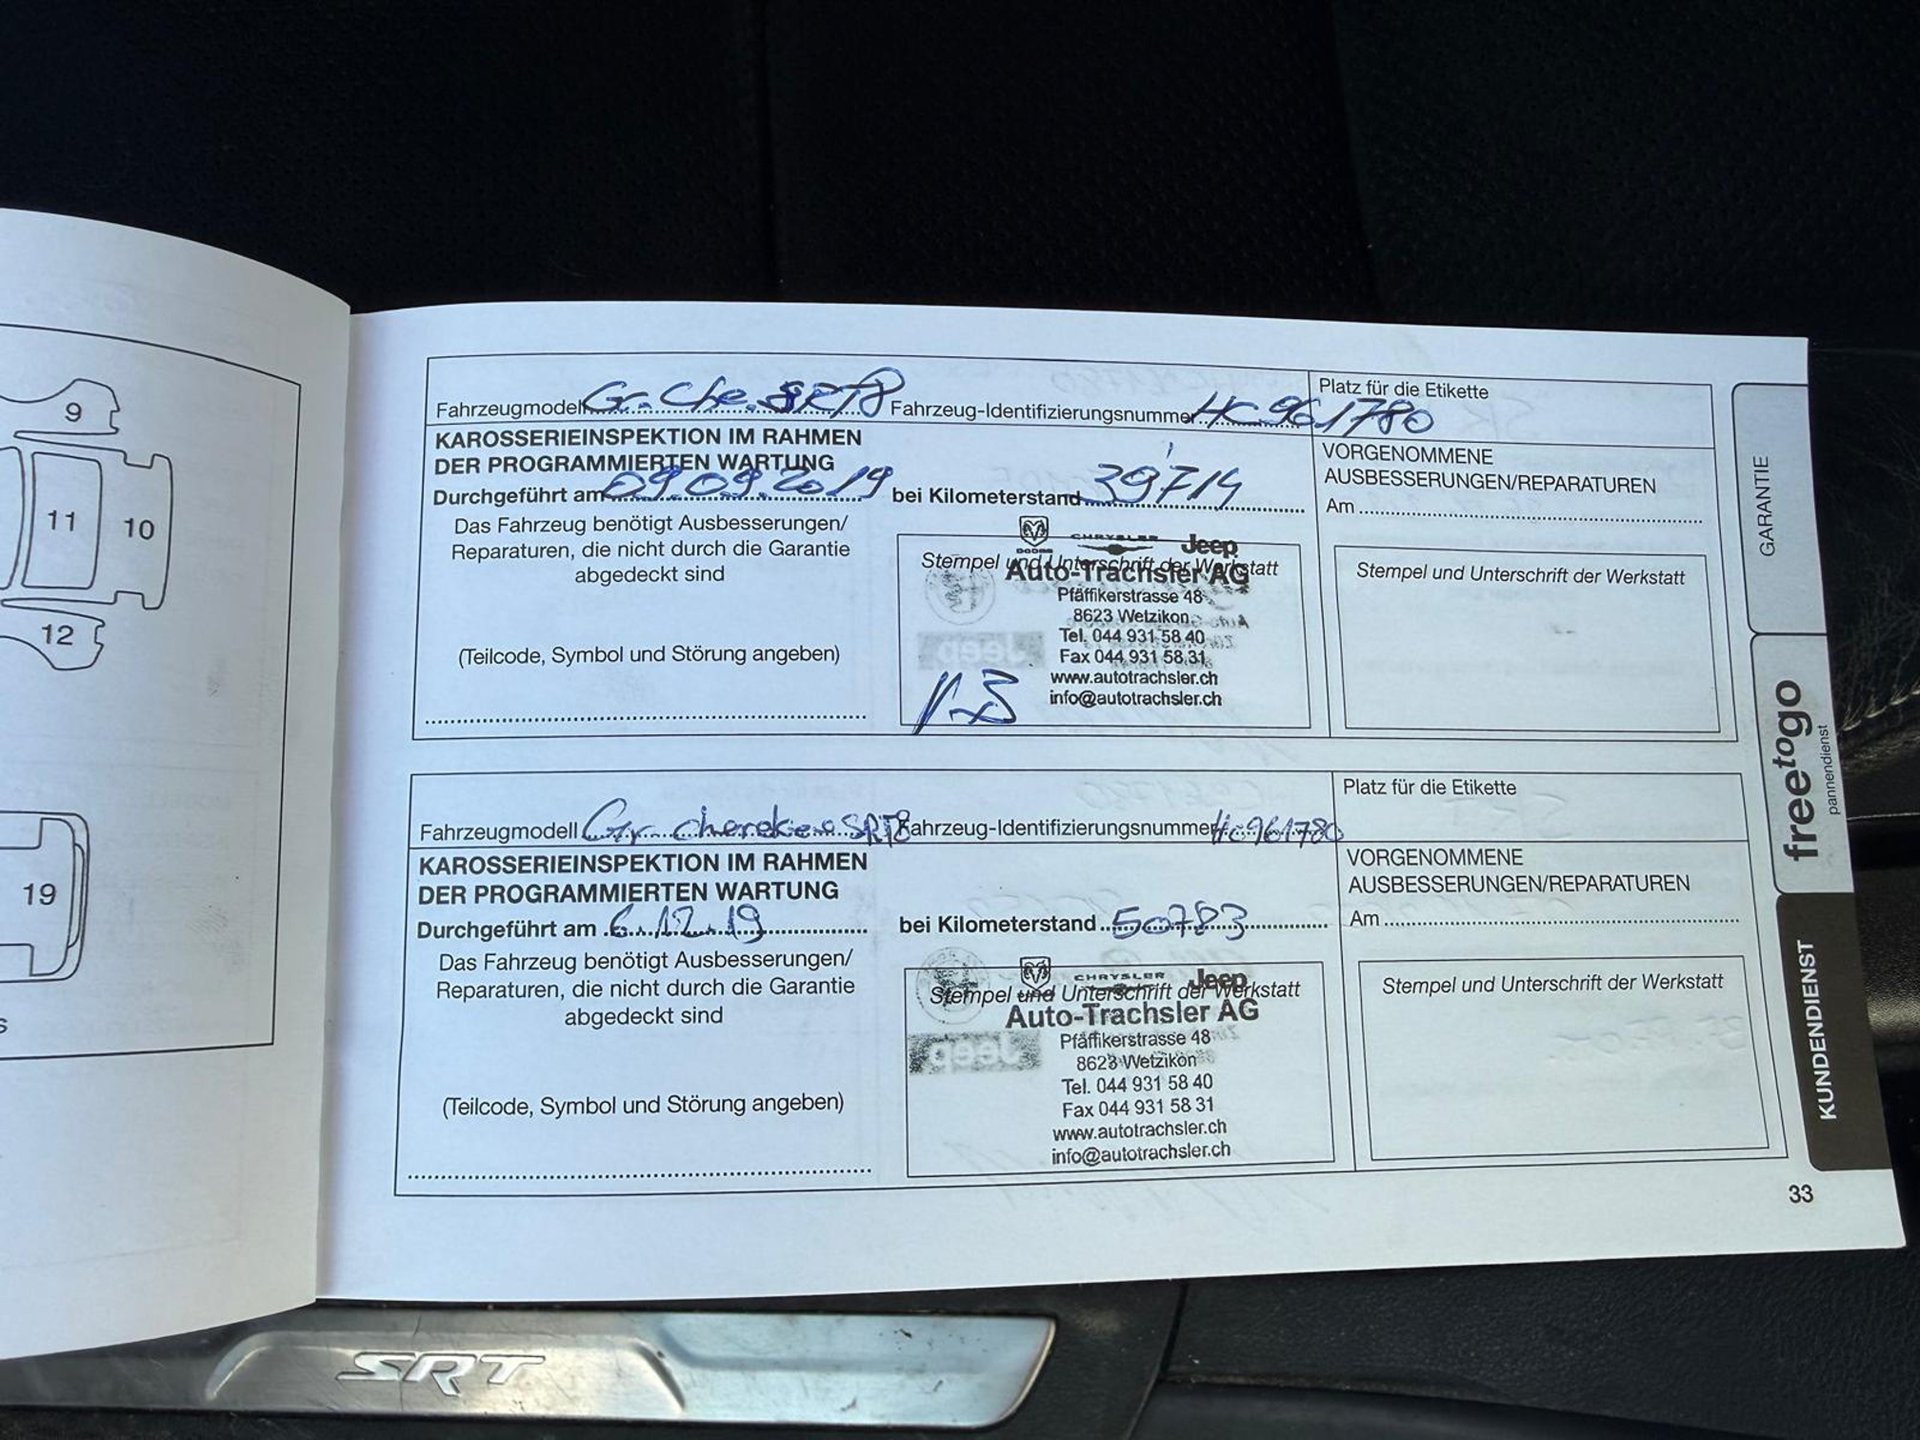 9
11
10
12
19
Fahrzeugmodell Gr. Che. SRT8 Fahrzeug-Identifizierungsnummer HC961780
Platz für die Etikette
KAROSSERIEINSPEKTION IM RAHMEN
DER PROGRAMMIERTEN WARTUNG
Durchgeführt am 09.09.2019 bei Kilometerstand 39'714
Das Fahrzeug benötigt Ausbesserungen/
Reparaturen, die nicht durch die Garantie
abgedeckt sind
(Teilcode, Symbol und Störung angeben)
DODGE
CHRYSLER
Jeep
Stempel und Unterschrift der Werkstatt
Auto-Trachsler AG
Pfäffikerstrasse 48
8623 Wetzikon
Tel. 044 931 58 40
Fax 044 931 58 31
www.autotrachsler.ch
info@autotrachsler.ch
VORGENOMMENE
AUSBESSERUNGEN/REPARATUREN
Am
Stempel und Unterschrift der Werkstatt
Fahrzeugmodell Gr. cherokee SRT8 Fahrzeug-Identifizierungsnummer HC961780
Platz für die Etikette
KAROSSERIEINSPEKTION IM RAHMEN
DER PROGRAMMIERTEN WARTUNG
Durchgeführt am 6.12.19 bei Kilometerstand 50783
Das Fahrzeug benötigt Ausbesserungen/
Reparaturen, die nicht durch die Garantie
abgedeckt sind
(Teilcode, Symbol und Störung angeben)
CHRYSLER
Jeep
Stempel und Unterschrift der Werkstatt
Auto-Trachsler AG
Pfäffikerstrasse 48
8623 Wetzikon
Tel. 044 931 58 40
Fax 044 931 58 31
www.autotrachsler.ch
info@autotrachsler.ch
VORGENOMMENE
AUSBESSERUNGEN/REPARATUREN
Am
Stempel und Unterschrift der Werkstatt
GARANTIE
freetogo
pannendienst
KUNDENDIENST
33
SRT